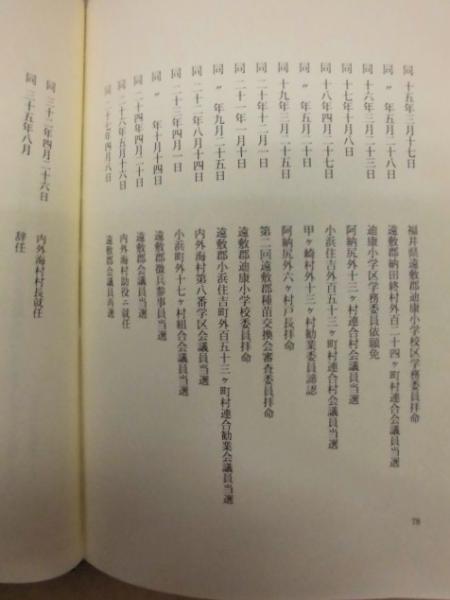 同 十五年三月十七日 福井県遠敷郡迪康小学校区学務委員拝命
同 〃 年五月二十八日 遠敷郡納田終村外百二十四ヶ町村連合会議員当選
同 十六年三月二十三日 迪康小学区学務委員依願免
同 十七年十月八日 阿納尻外十三ヶ村連合村会議員当選
同 十八年四月二十七日 小浜住吉外百五十三ヶ町村連合村会議員当選
同 〃 年五月二日 甲ヶ崎村外十三ヶ村勧業委員認
同 十九年三月二十五日 阿納尻外六ヶ村戸長拝命
同 二十年十二月一日 第二回遠敷郡種苗交換会審査委員拝命
同 二十一年一月十日 遠敷郡迪康小学校委員拝命
同 〃 年九月二十五日 遠敷郡小浜住吉町外百五十三ヶ町村連合勧業会議員当選
同 二十二年八月十四日 内外海村第八番学区会議員当選
同 二十三年四月一日 小浜町外十七ヶ村組合会議員当選
同 〃 年十月十四日 遠敷郡徴兵参事員当選
同 二十四年四月二十日 遠敷郡会議員当選
同 二十六年五月十六日 内外海村助役ニ就任
同 二十七年四月八日 遠敷郡会議員当選
78
同 三十二年四月二十六日 内外海村村長就任
同 三十五年八月 辞任